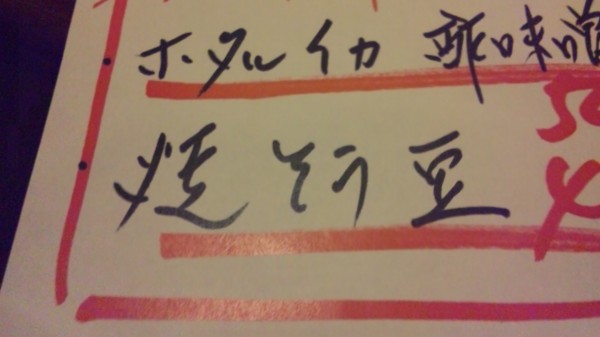 ホタルイカ 酢味噌
5
焼そら豆
4